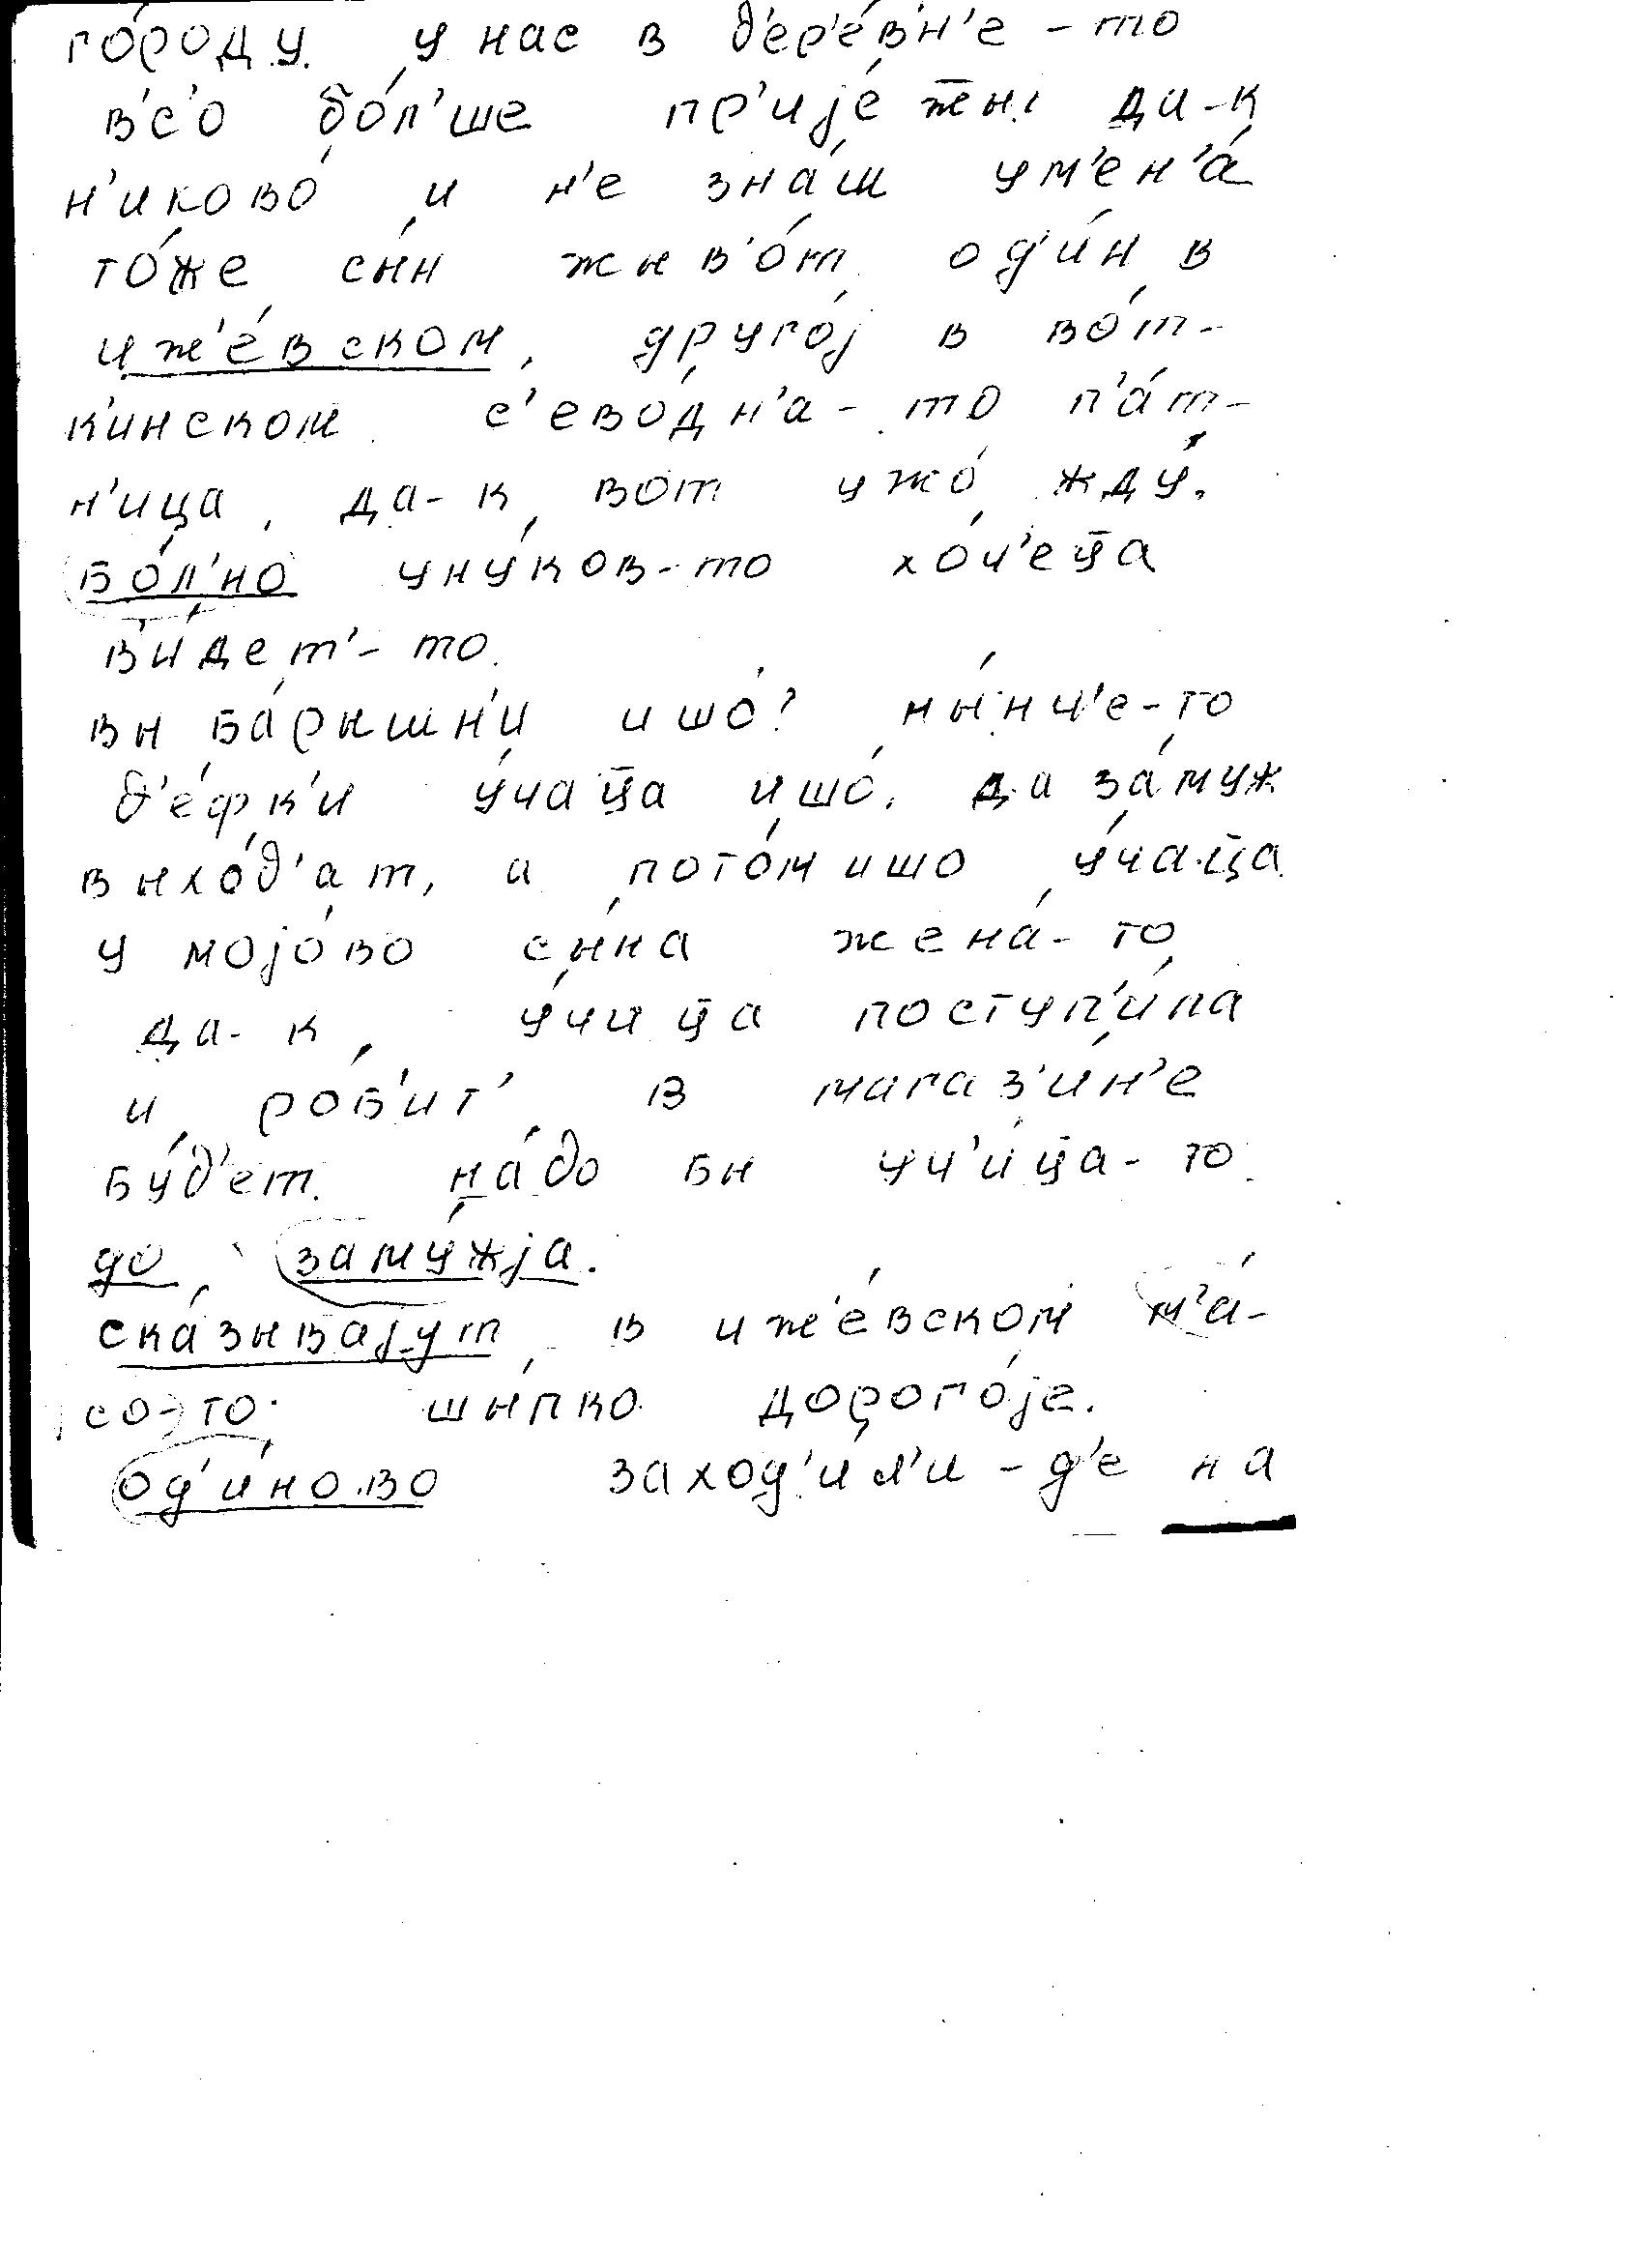 го́роду. у нас в д'ер'е́в'н'е - то
в'с'о бо́л'ше пр'ије́т̄ны да-к
н'иково́ и н'е зна́ш ум'ен'а́
то́же сы́н жыв'о́т. од'и́н в
иж'е́вском, друго́ј в во́т-
к'инском. с'ево́дн'а - то п'а́т-
н'ица, да-к, вот ужо́ жду́.
бо́л'но уну́ков-то хо́ч'ец̄а
в'и́дет'- то.
вы ба́рышн'и ишо́? ны́нч'е-то
д'е́фк'и у́чац̄а ишо́, да за́муж
выхо́д'ат, а пото́м ишо у́чац̄а
у мојо́во сы́на жена́- то,
да- к, у́чиц̄а поступ'и́ла
и ро́б'ит' в магаз'и́н'е
бу́д'ет. на́до бы уч'и́ц̄а- то
до заму́жја.
ска́зывајут, в иж'е́вском м'а́-
со-то шы́пко дорого́је.
од'и́ново заход'и́л'и - д'е на